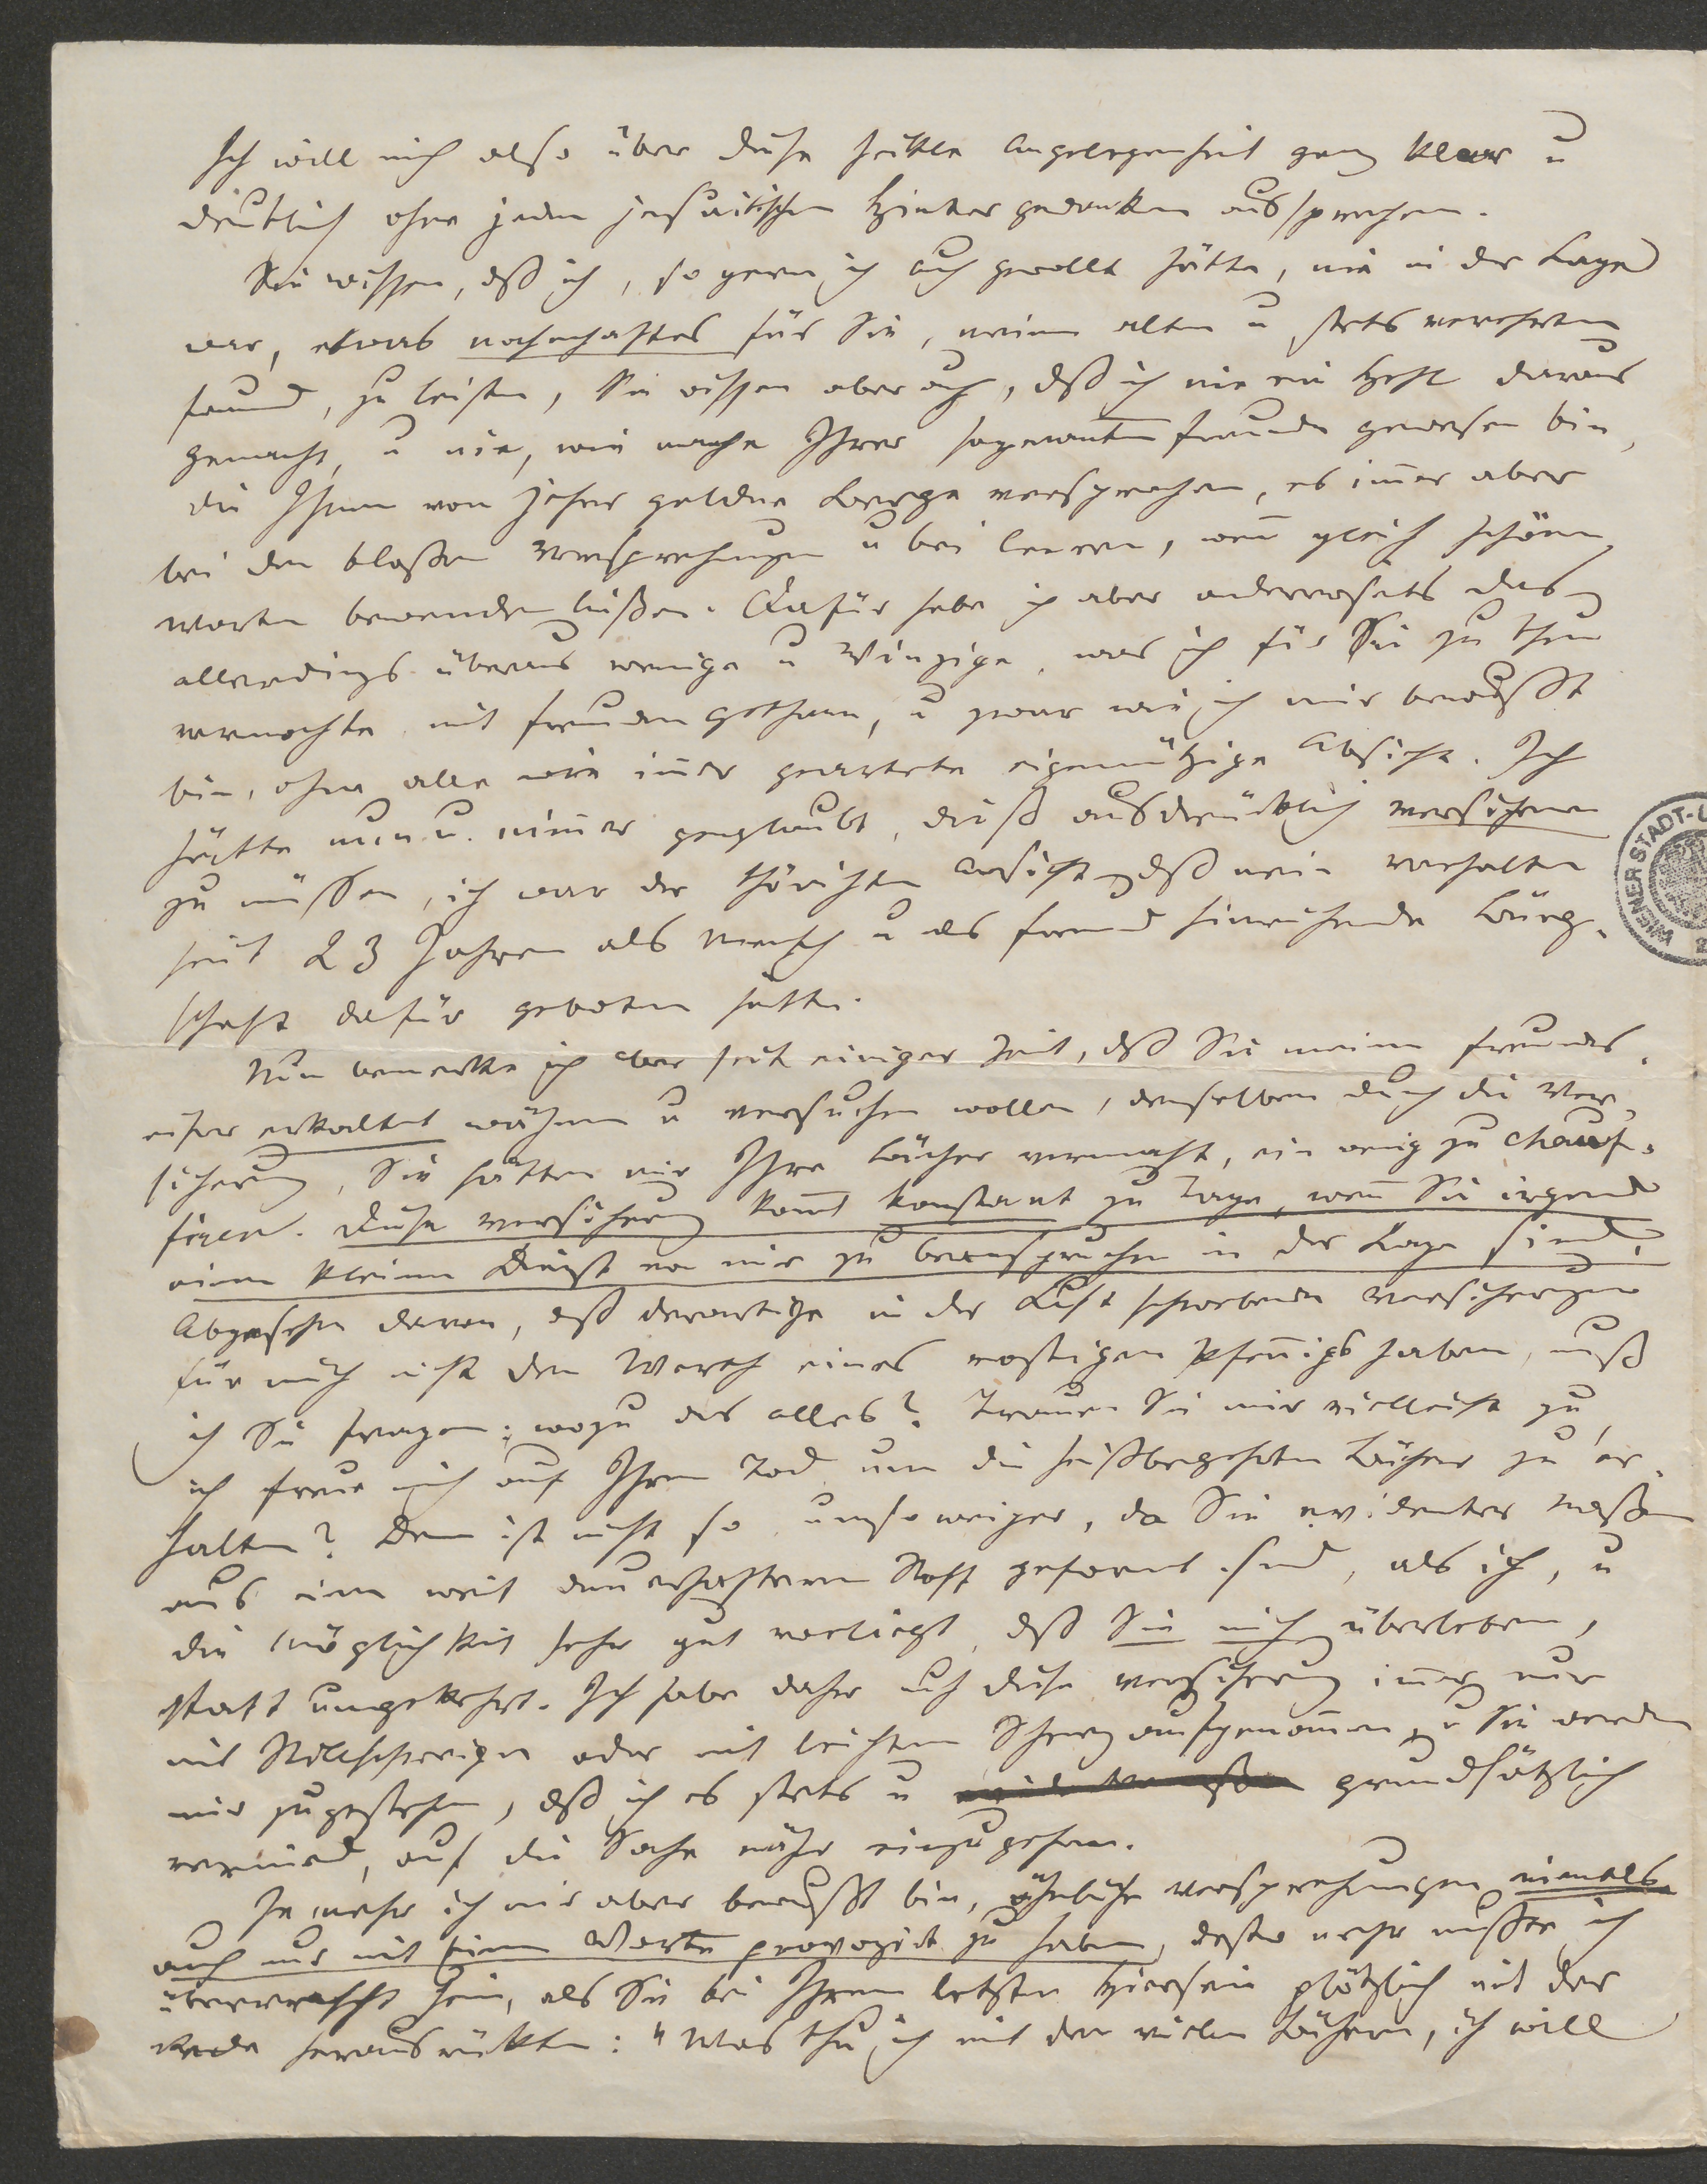 Ich will mich also über diese heikle Angelegenheit ganz klar u
deutlich ohne jeden jesuitischen Hintergedanken aussprechen.
Sie wissen, dß ich, so gern ich auch gewollt hätte, nie in der Lage
war, etwas nahmhaftes für Sie, meinen alten u stets verehrten
Freund, zu leisten, Sie wissen aber auch, dß ich nie ein Hehl daraus
gemacht, u nie, wie manche Ihrer sogenannten Freunde gewesen bin,
die Ihnen von jeher goldne Berge versprachen, es im̅er aber
bei den bloßen Versprechungen u bei leeren, wen̅ gleich schönen
Worten bewenden ließen. Dafür habe ich aber anderseits das
allerdings überaus wenige u Winzige, was ich für Sie zu thun
vermochte mit Freuden gethan, u zwar wie ich mir bewußt
bin, ohne alle wie im̅er geartete eigennützige Absicht. Ich
hätte nun u. nim̅er geglaubt, dieß ausdrücklich versichern
zu müssen, ich war der thörichten Ansicht, dß mein Verhalten
seit 23 Jahren als Mensch u als Freund hinreichende Bürg-
schaft dafür geboten hätte.
Nun bemerke ich aber seit einiger Zeit, dß Sie meinen Freundes-
eifer erkaltet wähnen u versuchen wollen, denselben durch die Ver-
sicherung, Sie hätten mir Ihre Bücher vermacht, ein wenig zu chauf-
firen. Diese Versicherung kom̅t konstant zu Tage, wen̅ Sie irgend
einen kleinen Dienst von mir zu beanspruchen in der Lage sind.
Abgesehen davon, dß derartige in der Luft schwebende Versicherungen
für mich nicht den Werth eines rostigen Pfen̅igs haben, muß
ich Sie fragen: wozu das alles? Trauen Sie mir vielleicht zu,
ich freue mich auf Ihren Tod um die heißbegehrten Bücher zu er-
halten? Dem ist nicht so, umsoweniger, da Sie evidenter Maßen
aus einem weit dauerhafteren Stoff geformt sind, als ich, u
die Möglichkeit sehr gut vorliegt, dß Sie mich überleben,
statt umgekehrt. Ich habe daher auch diese Versicherung im̅er nur
mit Stillschweigen oder mit leichtem Scherz aufgenom̅en, u Sie werden
mir zugestehen, dß ich es stets u grundsätzlich
vermied, auf die Sache näher einzugehen.
Je mehr ich mir aber bewußt bin, ähnliche Versprechungen niemals
auch nur mit einem Worte provozirt zu haben, desto mehr mußte ich
überrascht sein, als Sie bei Ihrem letzten Hiersein plötzlich mit der
Rede herausrückten: "Was thu ich mit den vielen Büchern, ich will
WIENER STADT-